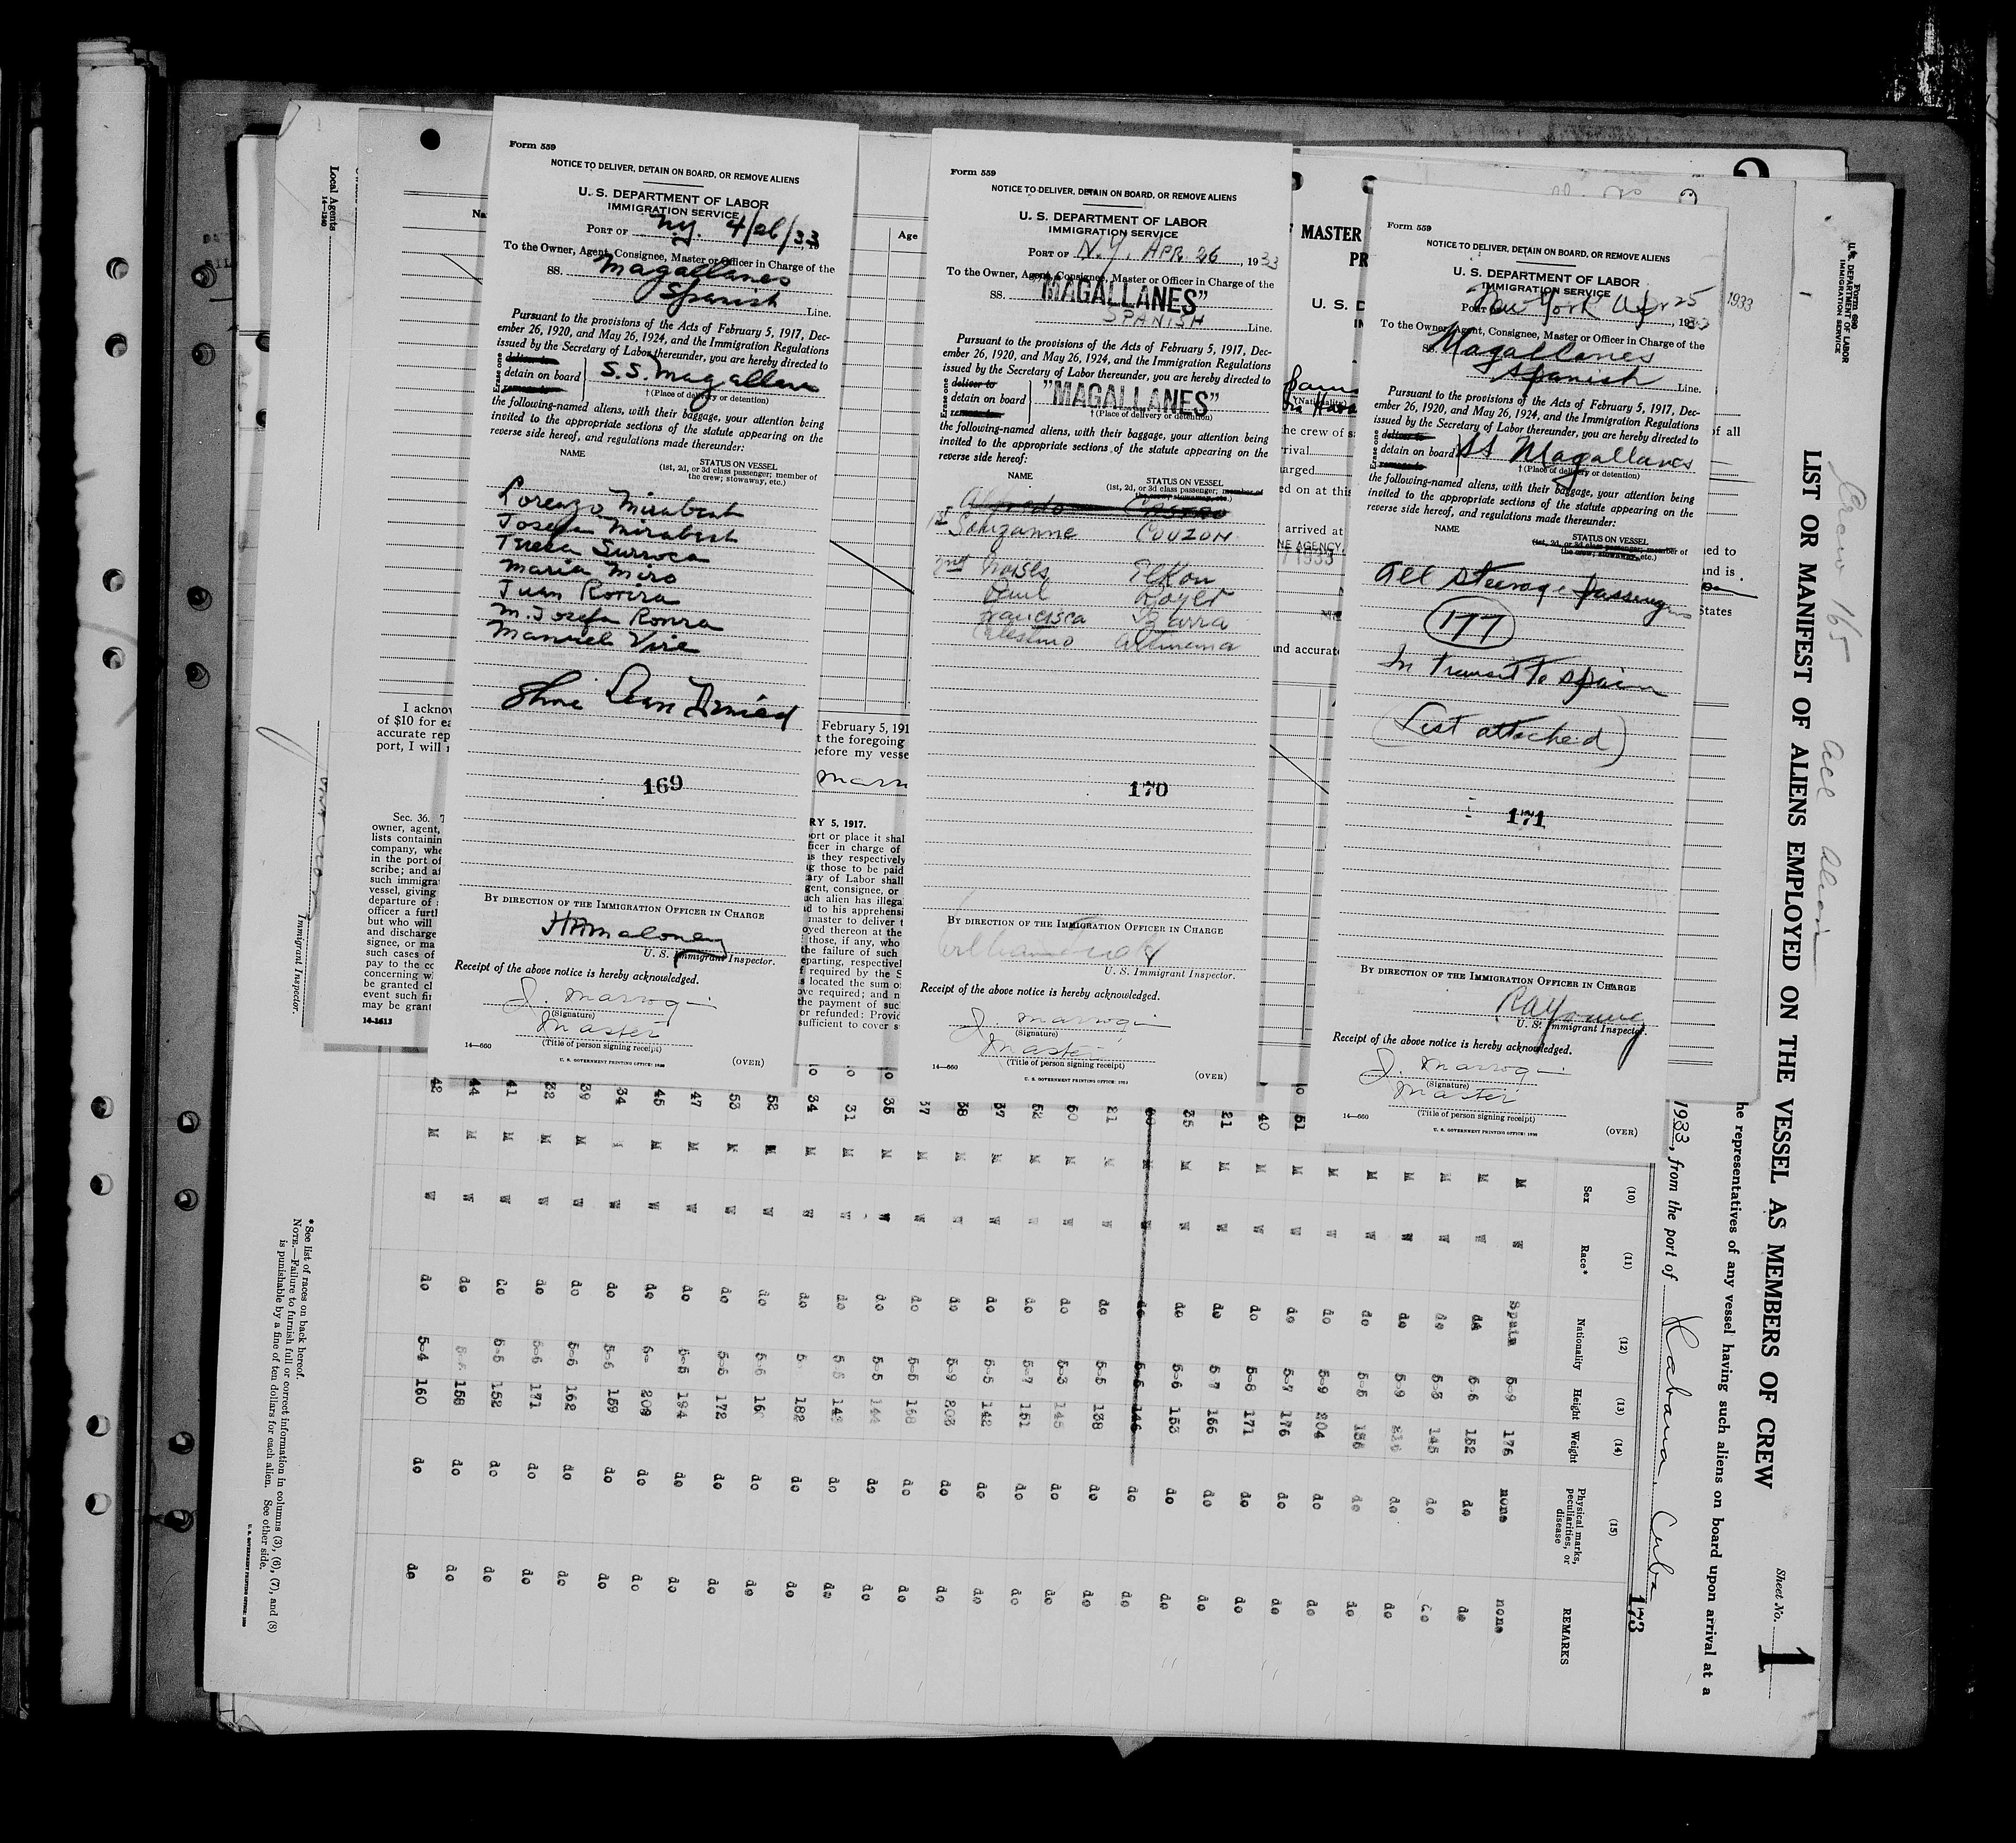 Form 559
NOTICE TO DELIVER, DETAIN ON BOARD, OR REMOVE ALIENS
U. S. DEPARTMENT OF LABOR
IMMIGRATION SERVICE
PORT OF N.Y. 4/26/33
To the Owner, Agent, Consignee, Master or Officer in Charge of the
SS. Magallanes
Spanish Line.
Pursuant to the provisions of the Acts of February 5, 1917, Dec-
ember 26, 1920, and May 26, 1924, and the Immigration Regulations
issued by the Secretary of Labor thereunder, you are hereby directed to
Erase one
deliver to
detain on board S.S. Magallanes
remove to
† (Place of delivery or detention)
the following-named aliens, with their baggage, your attention being
invited to the appropriate sections of the statute appearing on the
reverse side hereof, and regulations made thereunder:
NAME STATUS ON VESSEL
(1st, 2d, or 3d class passenger; member of
the crew; stowaway, etc.)
Lorenzo Mirabent
Josefa Mirabent
Teresa Surroca
Maria Miro
Juan Rovira
M. Josefa Rovira
Manuel Vire
169
BY DIRECTION OF THE IMMIGRATION OFFICER IN CHARGE
HAMaloney
U. S. Immigrant Inspector.
Receipt of the above notice is hereby acknowledged.
J. Marroqui
(Signature)
Master
(Title of person signing receipt)
14—660
U. S. GOVERNMENT PRINTING OFFICE
(OVER)
Form 559
NOTICE TO DELIVER, DETAIN ON BOARD, OR REMOVE ALIENS
U. S. DEPARTMENT OF LABOR
IMMIGRATION SERVICE
PORT OF N.Y. APR. 26, 1933
To the Owner, Agent, Consignee, Master or Officer in Charge of the
SS. "MAGALLANES"
SPANISH Line.
Pursuant to the provisions of the Acts of February 5, 1917, Dec-
ember 26, 1920, and May 26, 1924, and the Immigration Regulations
issued by the Secretary of Labor thereunder, you are hereby directed to
Erase one
deliver to
detain on board "MAGALLANES"
remove to
† (Place of delivery or detention)
the following-named aliens, with their baggage, your attention being
invited to the appropriate sections of the statute appearing on the
reverse side hereof:
NAME STATUS ON VESSEL
(1st, 2d, or 3d class passenger; member of
the crew; stowaway, etc.)
Alfredo Castro
1st Souzanne COUZON
2nd Moises Elkon
Paul Royer
Francisca Ybarra
Celestino Altunema
170
BY DIRECTION OF THE IMMIGRATION OFFICER IN CHARGE
U. S. Immigrant Inspector.
Receipt of the above notice is hereby acknowledged.
J. Marroqui
(Signature)
Master
(Title of person signing receipt)
14—660
U. S. GOVERNMENT PRINTING OFFICE
(OVER)
Form 559
NOTICE TO DELIVER, DETAIN ON BOARD, OR REMOVE ALIENS
U. S. DEPARTMENT OF LABOR
IMMIGRATION SERVICE
PORT OF New York Apr 25, 1933
1933
To the Owner, Agent, Consignee, Master or Officer in Charge of the
SS. Magallanes
Spanish Line.
Pursuant to the provisions of the Acts of February 5, 1917, Dec-
ember 26, 1920, and May 26, 1924, and the Immigration Regulations
issued by the Secretary of Labor thereunder, you are hereby directed to
Erase one
deliver to
detain on board SS Magallanes
remove to
† (Place of delivery or detention)
the following-named aliens, with their baggage, your attention being
invited to the appropriate sections of the statute appearing on the
reverse side hereof, and regulations made thereunder:
NAME STATUS ON VESSEL
(1st, 2d, or 3d class passenger; member of
the crew; stowaway, etc.)
all steerage passengers
177
In transit to Spain
(List attached)
171
BY DIRECTION OF THE IMMIGRATION OFFICER IN CHARGE
RAYoung
U. S. Immigrant Inspector.
Receipt of the above notice is hereby acknowledged.
J. Marroqui
(Signature)
Master
(Title of person signing receipt)
14—660
U. S. GOVERNMENT PRINTING OFFICE
(OVER)
Local Agents
14—1240
Age
MASTER
U. S. D
I acknow
of $10 for ea
accurate rep
port, I will
February 5, 191
t the foregoing
before my vesse
Sec. 36.
owner, agent,
lists containin
company, whe
in the port of
scribe; and af
such immigra
vessel, giving
departure of
officer a furth
but who will
and discharge
signee, or ma
such cases of
pay to the co
concerning w
be granted cl
event such fin
may be grant
14-1613
RY 5, 1917.
ort or place it shal
ficer in charge of
as they respectively
g those to be paid
ary of Labor shall
gent, consignee, or
ch alien has illega
d to his apprehensi
master to deliver t
oyed thereon at the
those, if any, who
the failure of such
eparting, respectivel
required by the S
s located the sum o
ove required; and n
the payment of suc
or refunded: Provid
sufficient to cover s
Immigrant Inspector.
Form 680
U. S. DEPARTMENT OF LABOR
IMMIGRATION SERVICE
Crew 165 all alien
LIST OR MANIFEST OF ALIENS EMPLOYED ON THE VESSEL AS MEMBERS OF CREW
Sheet No. 1
he representatives of any vessel having such aliens on board upon arrival at a
1933, from the port of Habana, Cuba
173
(10) (11) (12) (13) (14) (15)
Sex Race* Nationality Height Weight Physical marks, peculiarities, or disease REMARKS
M W Spain 5-9 176 none none
M W do 5-6 152 do do
M W do 5-3 145 do do
M W do 5-9 do do
M W do 5-5 do do
M W do 5-9 204 do do
51 M W do 5-7 176 do do
40 M W do 5-8 171 do do
21 M W do 5-7 166 do do
35 M W do 5-6 153 do do
M W do 5-5 146 do do
21 M W do 5-5 138 do do
50 M W do 5-3 145 do do
52 M W do 5-7 151 do do
37 M W do 5-5 142 do do
38 M W do 5-9 203 do do
37 M W do 5-5 168 do do
35 M W do 5-5 144 do do
31 M W do do do
34 M W do 182 do do
52 M W do do do
53 M W do 5-6 172 do do
47 M W do 5-5 194 do do
45 M W do 209 do do
34 W do 5-6 159 do do
39 M W do 5-6 162 do do
32 M W do 5-6 171 do do
41 M W do 5-5 152 do do
44 M W do 158 do do
42 M W do 5-4 160 do do
* See list of races on back hereof.
NOTE.—Failure to furnish full or correct information in columns (3), (6), (7), and (8)
is punishable by a fine of ten dollars for each alien. See other side.